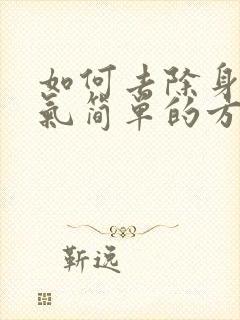 如何去除身
氣简单的方
靳远